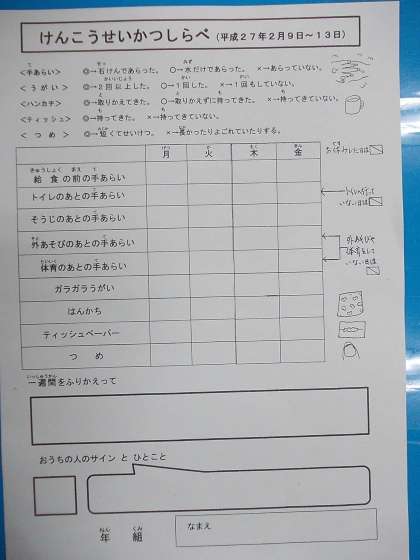 けんこうせいかつしらべ（平成２７年２月９日〜１３日）
＜手あらい＞ ◎→石けんであらった。 ○→水だけであらった。 ×→あらっていない。
＜うがい＞ ◎→２回以上した。 ○→１回した。 ×→１回もしていない。
＜ハンカチ＞ ◎→取りかえてきた。 ○→取りかえずに持ってきた。 ×→持ってきていない。
＜ティッシュ＞ ○→持ってきた。 ×→持ってきていない。
＜つめ＞ ○→短くてせいけつ。 ×→長かったりよごれていたりする。
月 火 木 金
給食の前の手あらい
トイレのあとの手あらい
そうじのあとの手あらい
外あそびのあとの手あらい
体育のあとの手あらい
ガラガラうがい
はんかち
ティッシュペーパー
つめ
外あそびや
体育をして
いない日は
一週間をふりかえって
おうちの人のサイン と ひとこと
年 組 なまえ